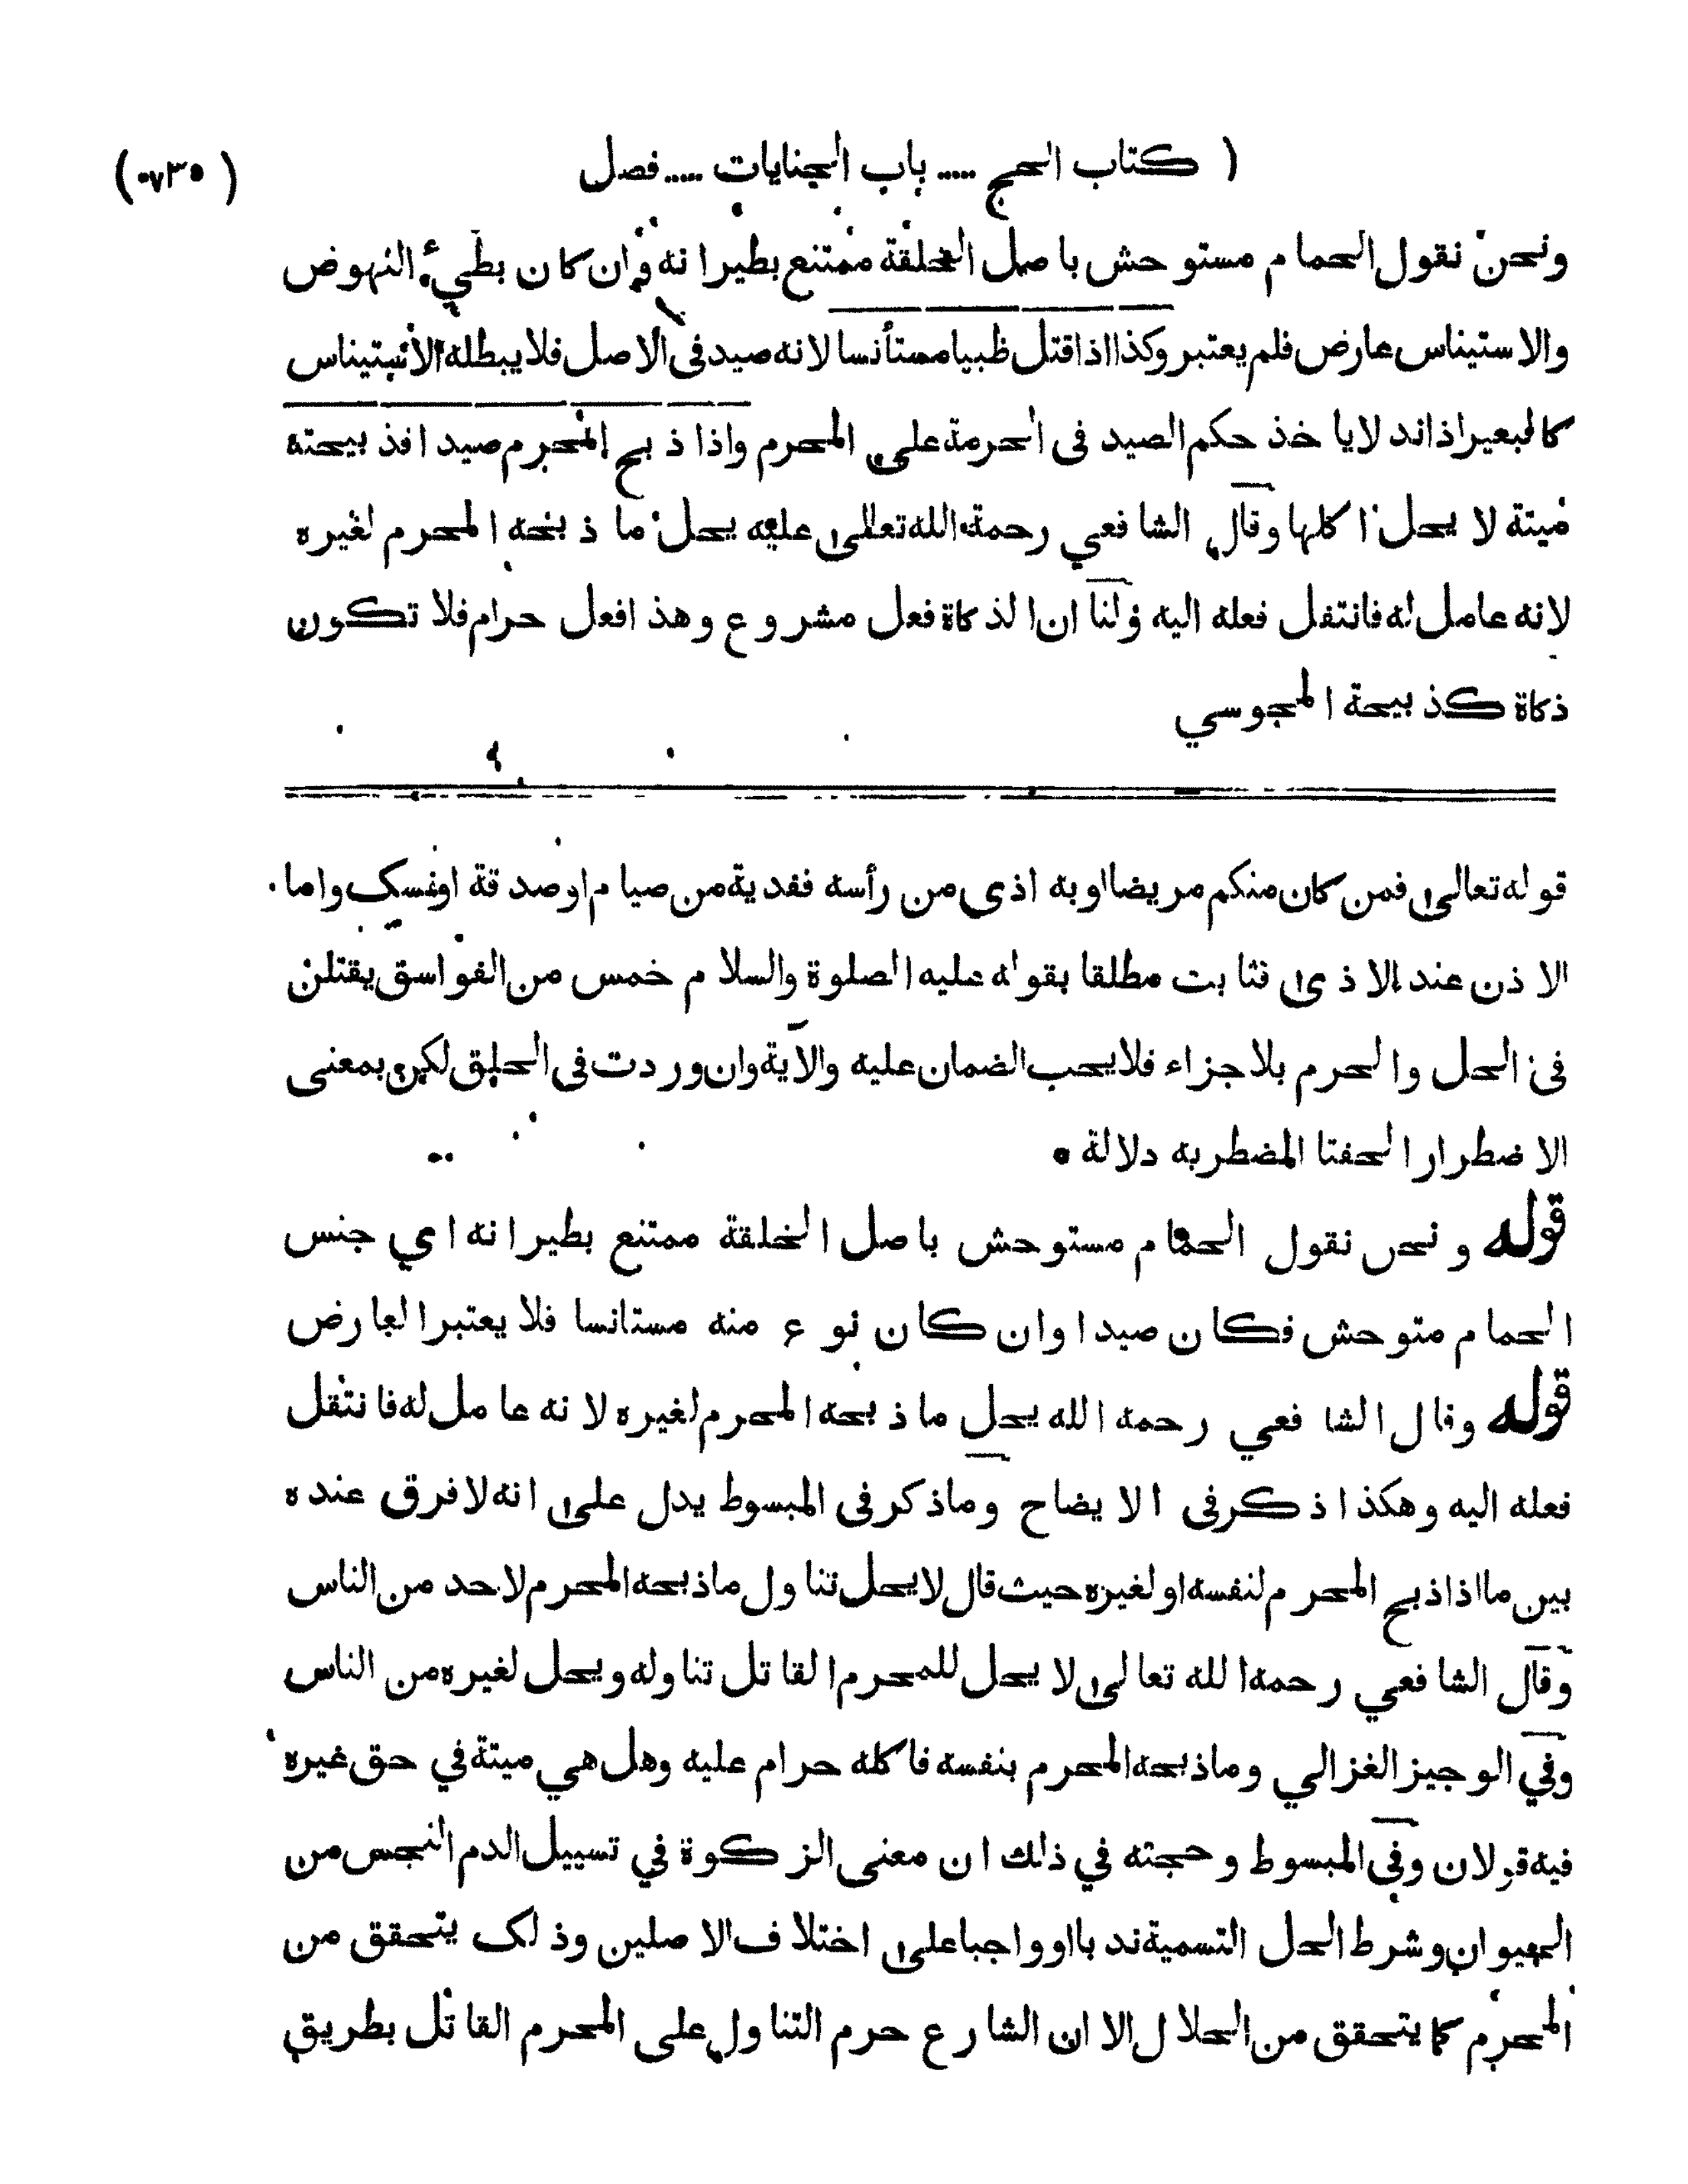 ( كتاب الحج ..... باب الجنايات ..... فصل
( ٧٣٥ )
ونحن نقول الحمام مستوحش باصل الخلقة ممتنع بطيرانه وان كان بطيء النهوض
والاستيناس عارض فلم يعتبر وكذا اذا قتل ظبيا مستأنسا لانه صيد فى الاصل فلا يبطله الاستيناس
كالبعير اذا ند لا ياخذ حكم الصيد فى الحرمة على المحرم واذا ذبح المحرم صيدا فذبيحته
ميتة لا يحل اكلها وقال الشافعي رحمة الله تعالى عليه يحل ما ذبحه المحرم لغيره
لانه عامل له فانتقل فعله اليه ولنا ان الذكاة فعل مشروع وهذا فعل حرام فلا تكون
ذكاة كذبيحة المجوسي
قوله تعالى فمن كان منكم مريضا اوبه اذى من رأسه ففدية من صيام اوصدقة اونسك واما
الاذن عند الاذى فثابت مطلقا بقوله عليه الصلوة والسلام خمس من الفواسق يقتلن
فى الحل والحرم بلا جزاء فلا يحب الضمان عليه والآية وان وردت فى الحلق لكن بمعنى
الاضطرار الحقنا المضطر به دلالة •
قوله ونحن نقول الحمام مستوحش باصل الخلقة ممتنع بطيرانه اي جنس
الحمام متوحش فكان صيدا وان كان نوع منه مستانسا فلا يعتبر العارض
قوله وقال الشافعي رحمه الله يحل ما ذبحه المحرم لغيره لانه عامل له فانتقل
فعله اليه وهكذا ذكر فى الايضاح وماذكر فى المبسوط يدل على انه لا فرق عنده
بين ما اذا ذبح المحرم لنفسه او لغيره حيث قال لا يحل تناول ماذبحه المحرم لاحد من الناس
وقال الشافعي رحمه الله تعالى لا يحل للمحرم القاتل تناوله ويحل لغيره من الناس
وفي الوجيز الغزالي وماذبحه المحرم بنفسه فاكله حرام عليه وهل هي ميتة في حق غيره
فيه قولان وفى المبسوط وحجته في ذلك ان معنى الزكوة في تسييل الدم النجس من
الحيوان وشرط الحل التسمية ندبا او واجبا على اختلاف الاصلين وذلك يتحقق من
المحرم كما يتحقق من الحلال الا ان الشارع حرم التناول على المحرم القاتل بطريق